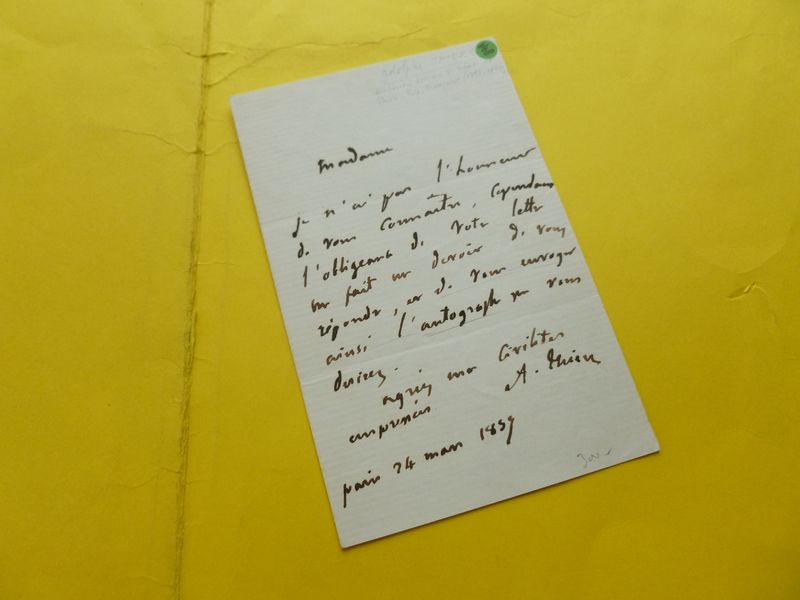 Adolphe Thiers
Madame
je n'ai pas l'honneur
de vous connaître, cependant
l'obligeance de votre lettre
me fait un devoir de vous
répondre, et de vous envoyer
ainsi l'autographe que vous
desirez.
agréez mes civilités
empressées A. Thiers
paris 24 mars 1859
300